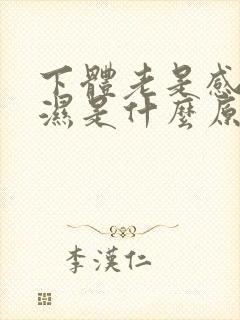 下體老是感
濕是什麼原
李漢仁